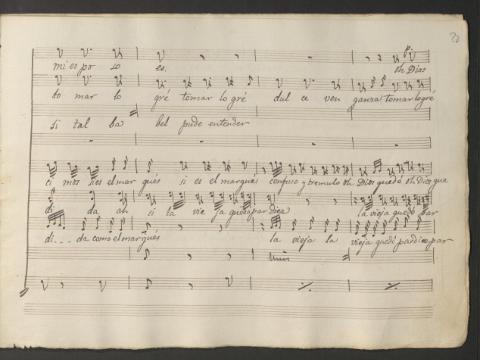 mi es po so es. oh Dios
to mar lo gré tomar lo gré dul ce ven ganza tomar logré
si tal ba bel pude entender
ci mos es el mar qués si es el marqués confuso y tremulo oh Dios quedó oh Dios que
di da ah si la vie ja queda par diez la vieja quedó par
di - - - da como el marqués la vieja la vieja quedó par diez par